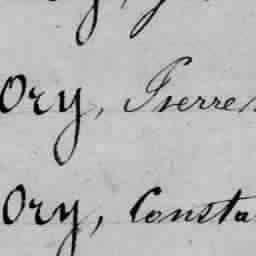 Ory, Pierre
Ory, Consta